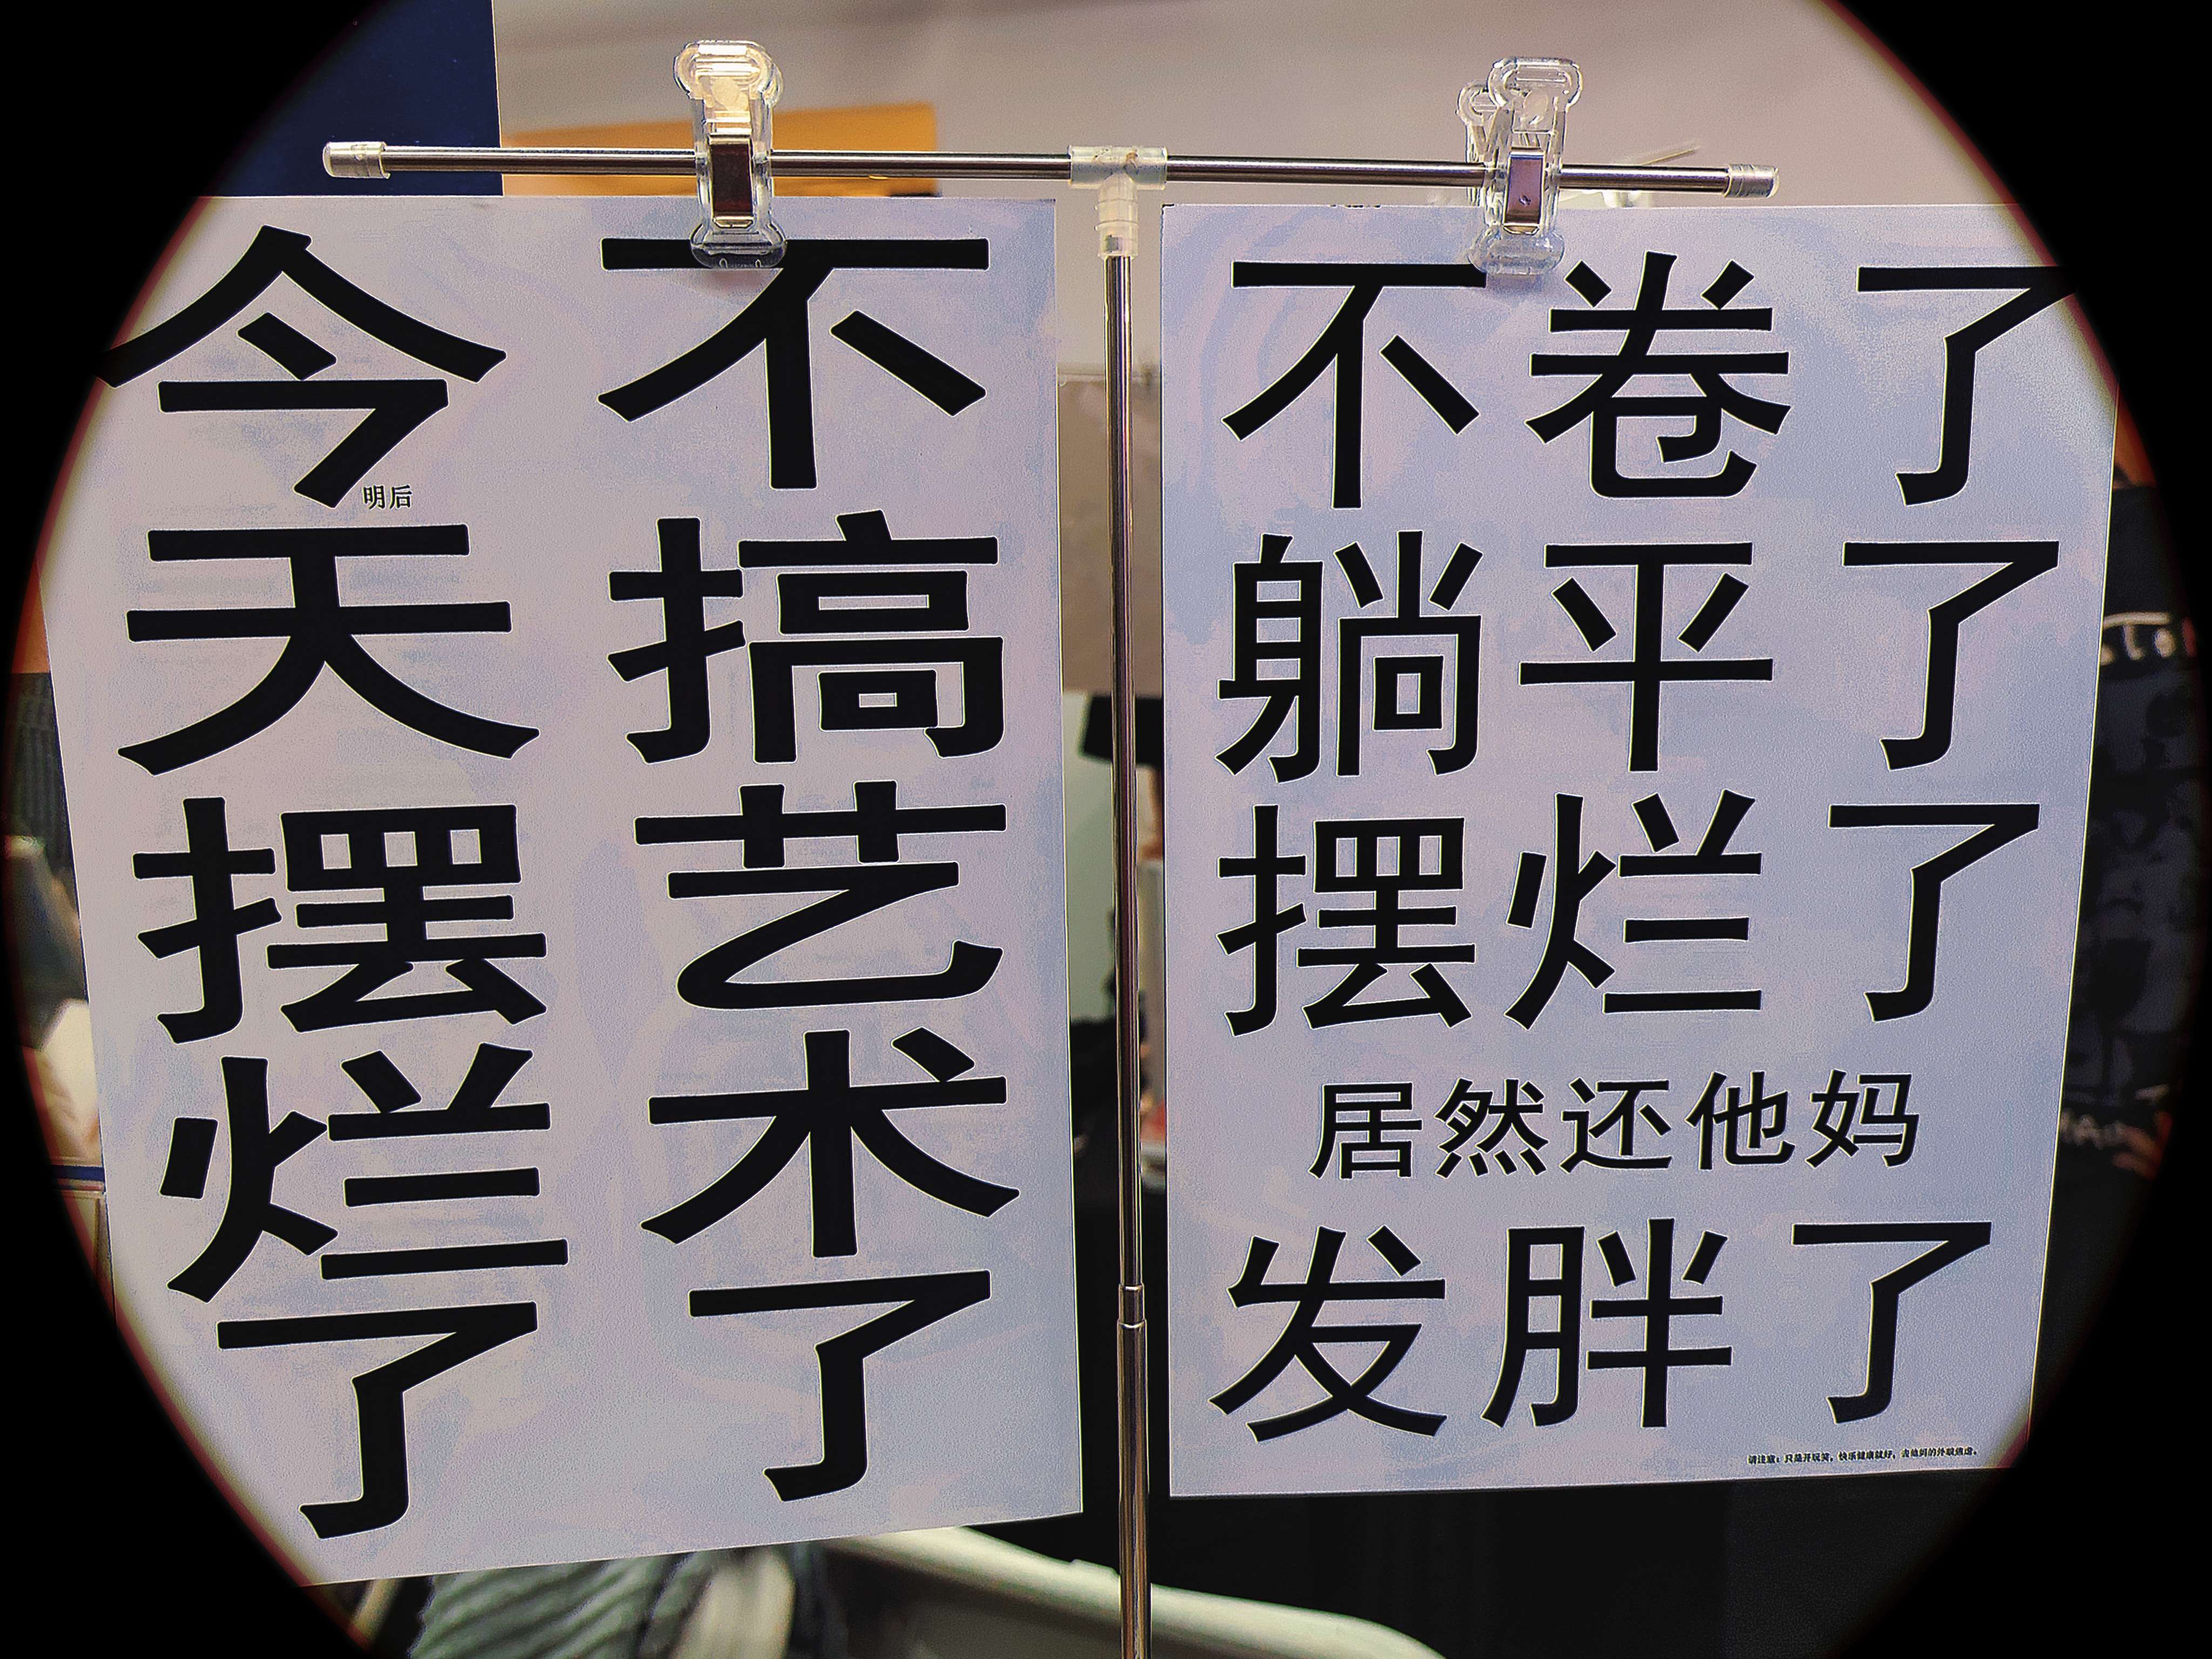 今天摆烂了
明后
不搞艺术了
不卷了
躺平了
摆烂了
居然还他妈
发胖了
请注意：只是开玩笑，快乐健康就好，去他妈的外貌焦虑。